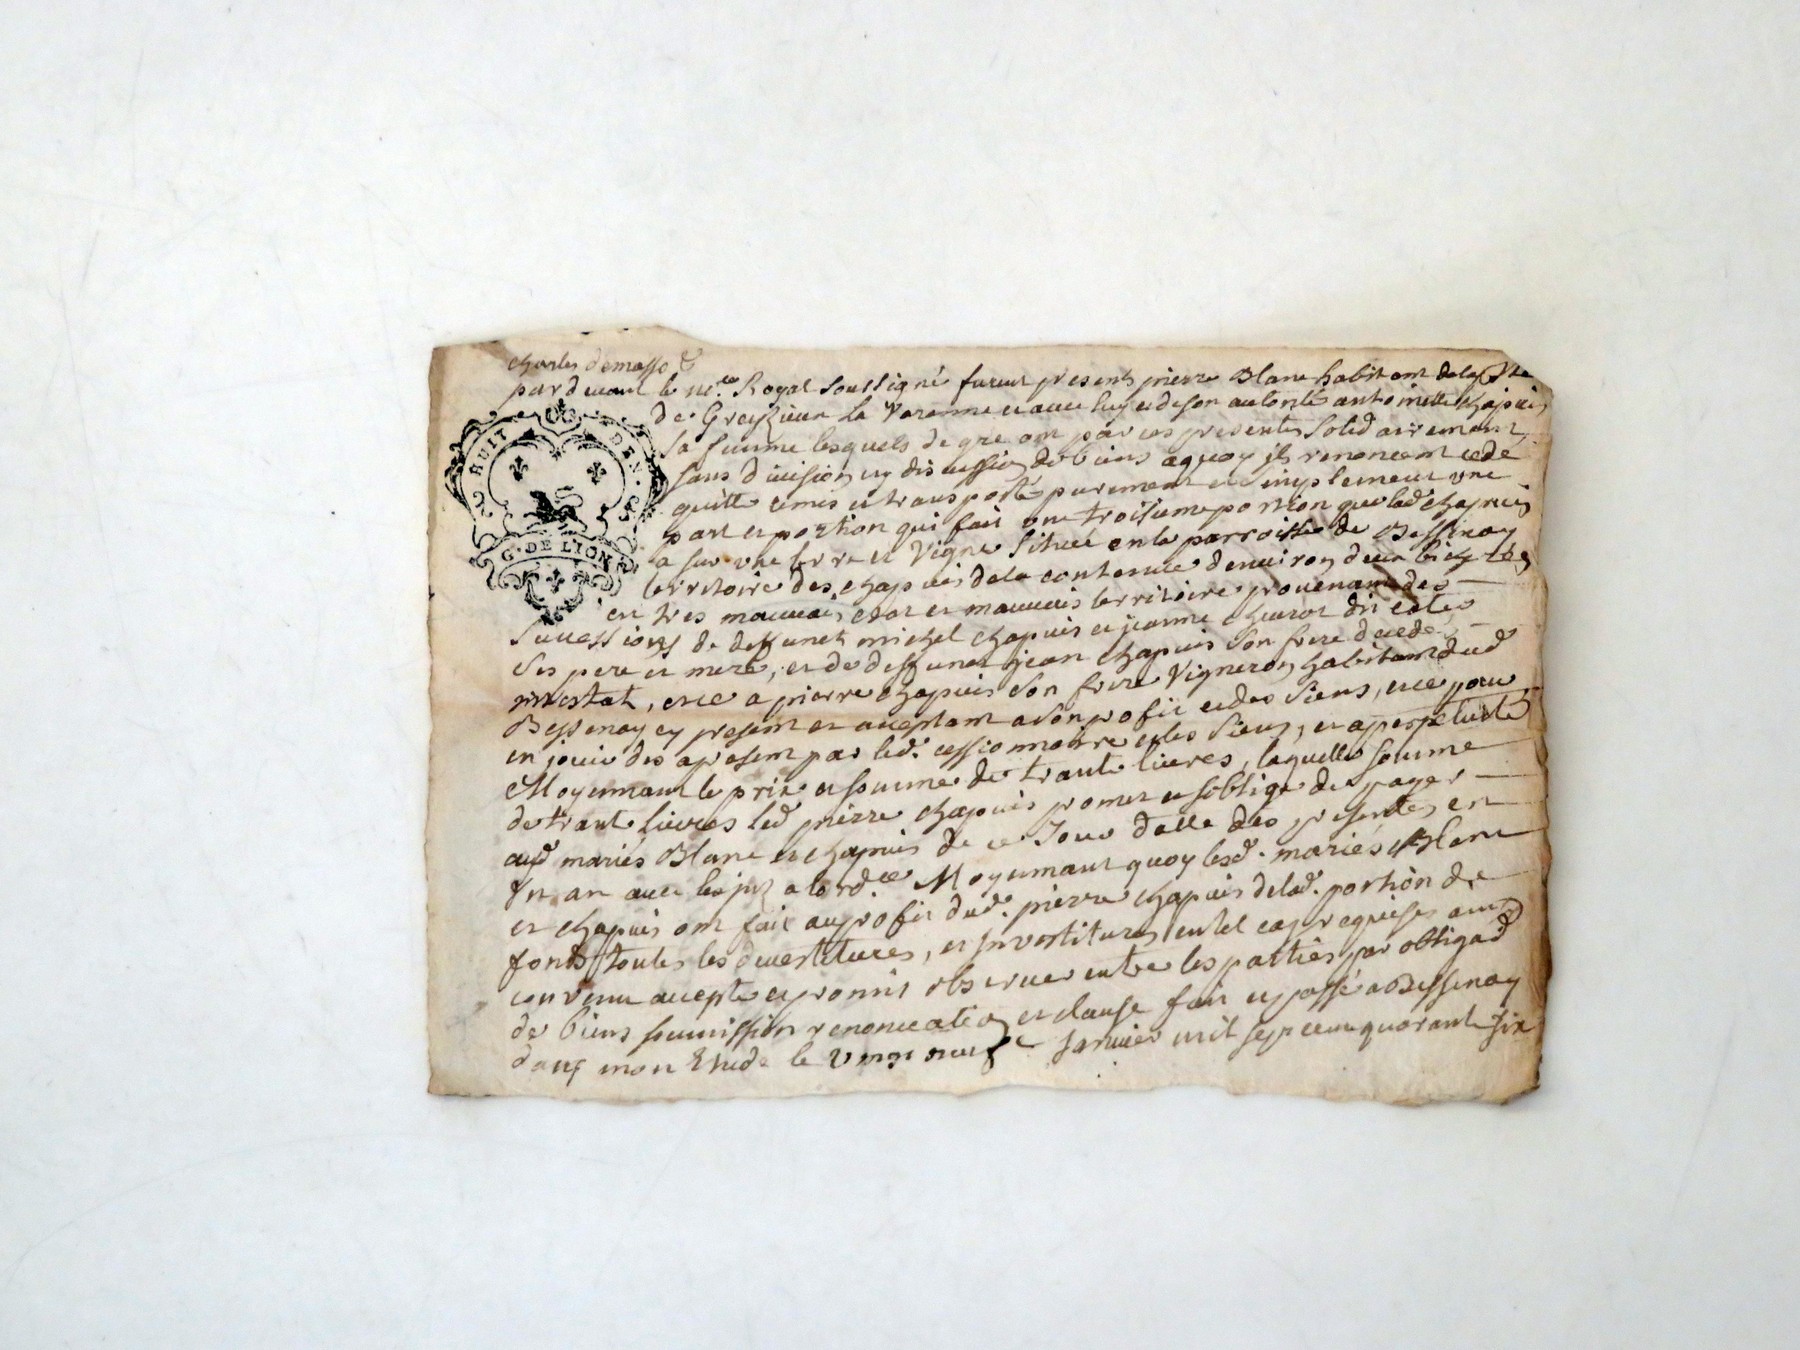 charles demasso &
par devant le no.re Royal soussigné furent presents pierre Blanc habitant de la
de Greyzieu la Varenne et avec luy et de son autorité antoinette chapuis
sa femme lesquels de gre ont par ces presentes solidairement
sans division ny discussion de biens a quoy ils renoncent cede
quitte remis et transporté purement et simplement une
part et portion qui fait une troisieme portion que lad chapuis
a sur une terre et vigne située en la parroisse de Bessenay
territoire des chapuis de la contenue d'environ deux
en tres mauvais etat et mauvais territoire provenant des
successions de deffunct michel chapuis et jeanne
ses pere et mere, et de deffunct jean chapuis son frere decede
intestat, et ce a pierre chapuis son frere Vigneron habitant dud
Bessenay cy present et acceptant a son profit et des siens, et ce pour
en jouir des apresent par led. cessionnaire et les siens, et a perpetuité
Moyennant le prix et somme de trante livres, laquelle somme
de trante livres led pierre chapuis promet et s'oblige de payer
aud mariés Blanc et chapuis de ce Jour d'alle des presentes en
un an avec a lord.ce Moyennant quoy lesd. mariés Blanc
et chapuis ont fait au profit dud. pierre chapuis de lad. portion de
fonds toutes les devestitures, et investitures en tel cas requises ainsy
convenu accepté et promis observer entre les parties par obligaõ
de biens soumission renonciation et clause fait et passé a Bessenay
dans mon Etude le vingt neuf janvier mil sept cent quarante six
C RUIT DEN. S
G. DE LION